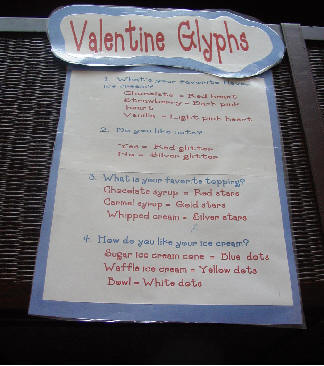 Valentine Glyphs
1. What's your favorite flavor
ice cream?
Chocolate = Red heart
Strawberry - Dark pink
heart
Vanilla - Light pink heart
2. Do you like nuts?
Yes = Red glitter
No = Silver glitter
3. What is your favorite topping?
Chocolate syrup = Red stars
Carmel syrup = Gold stars
Whipped cream = Silver stars
4. How do you like your ice cream?
Sugar ice cream cone = Blue dots
Waffle ice cream = Yellow dots
Bowl = White dots